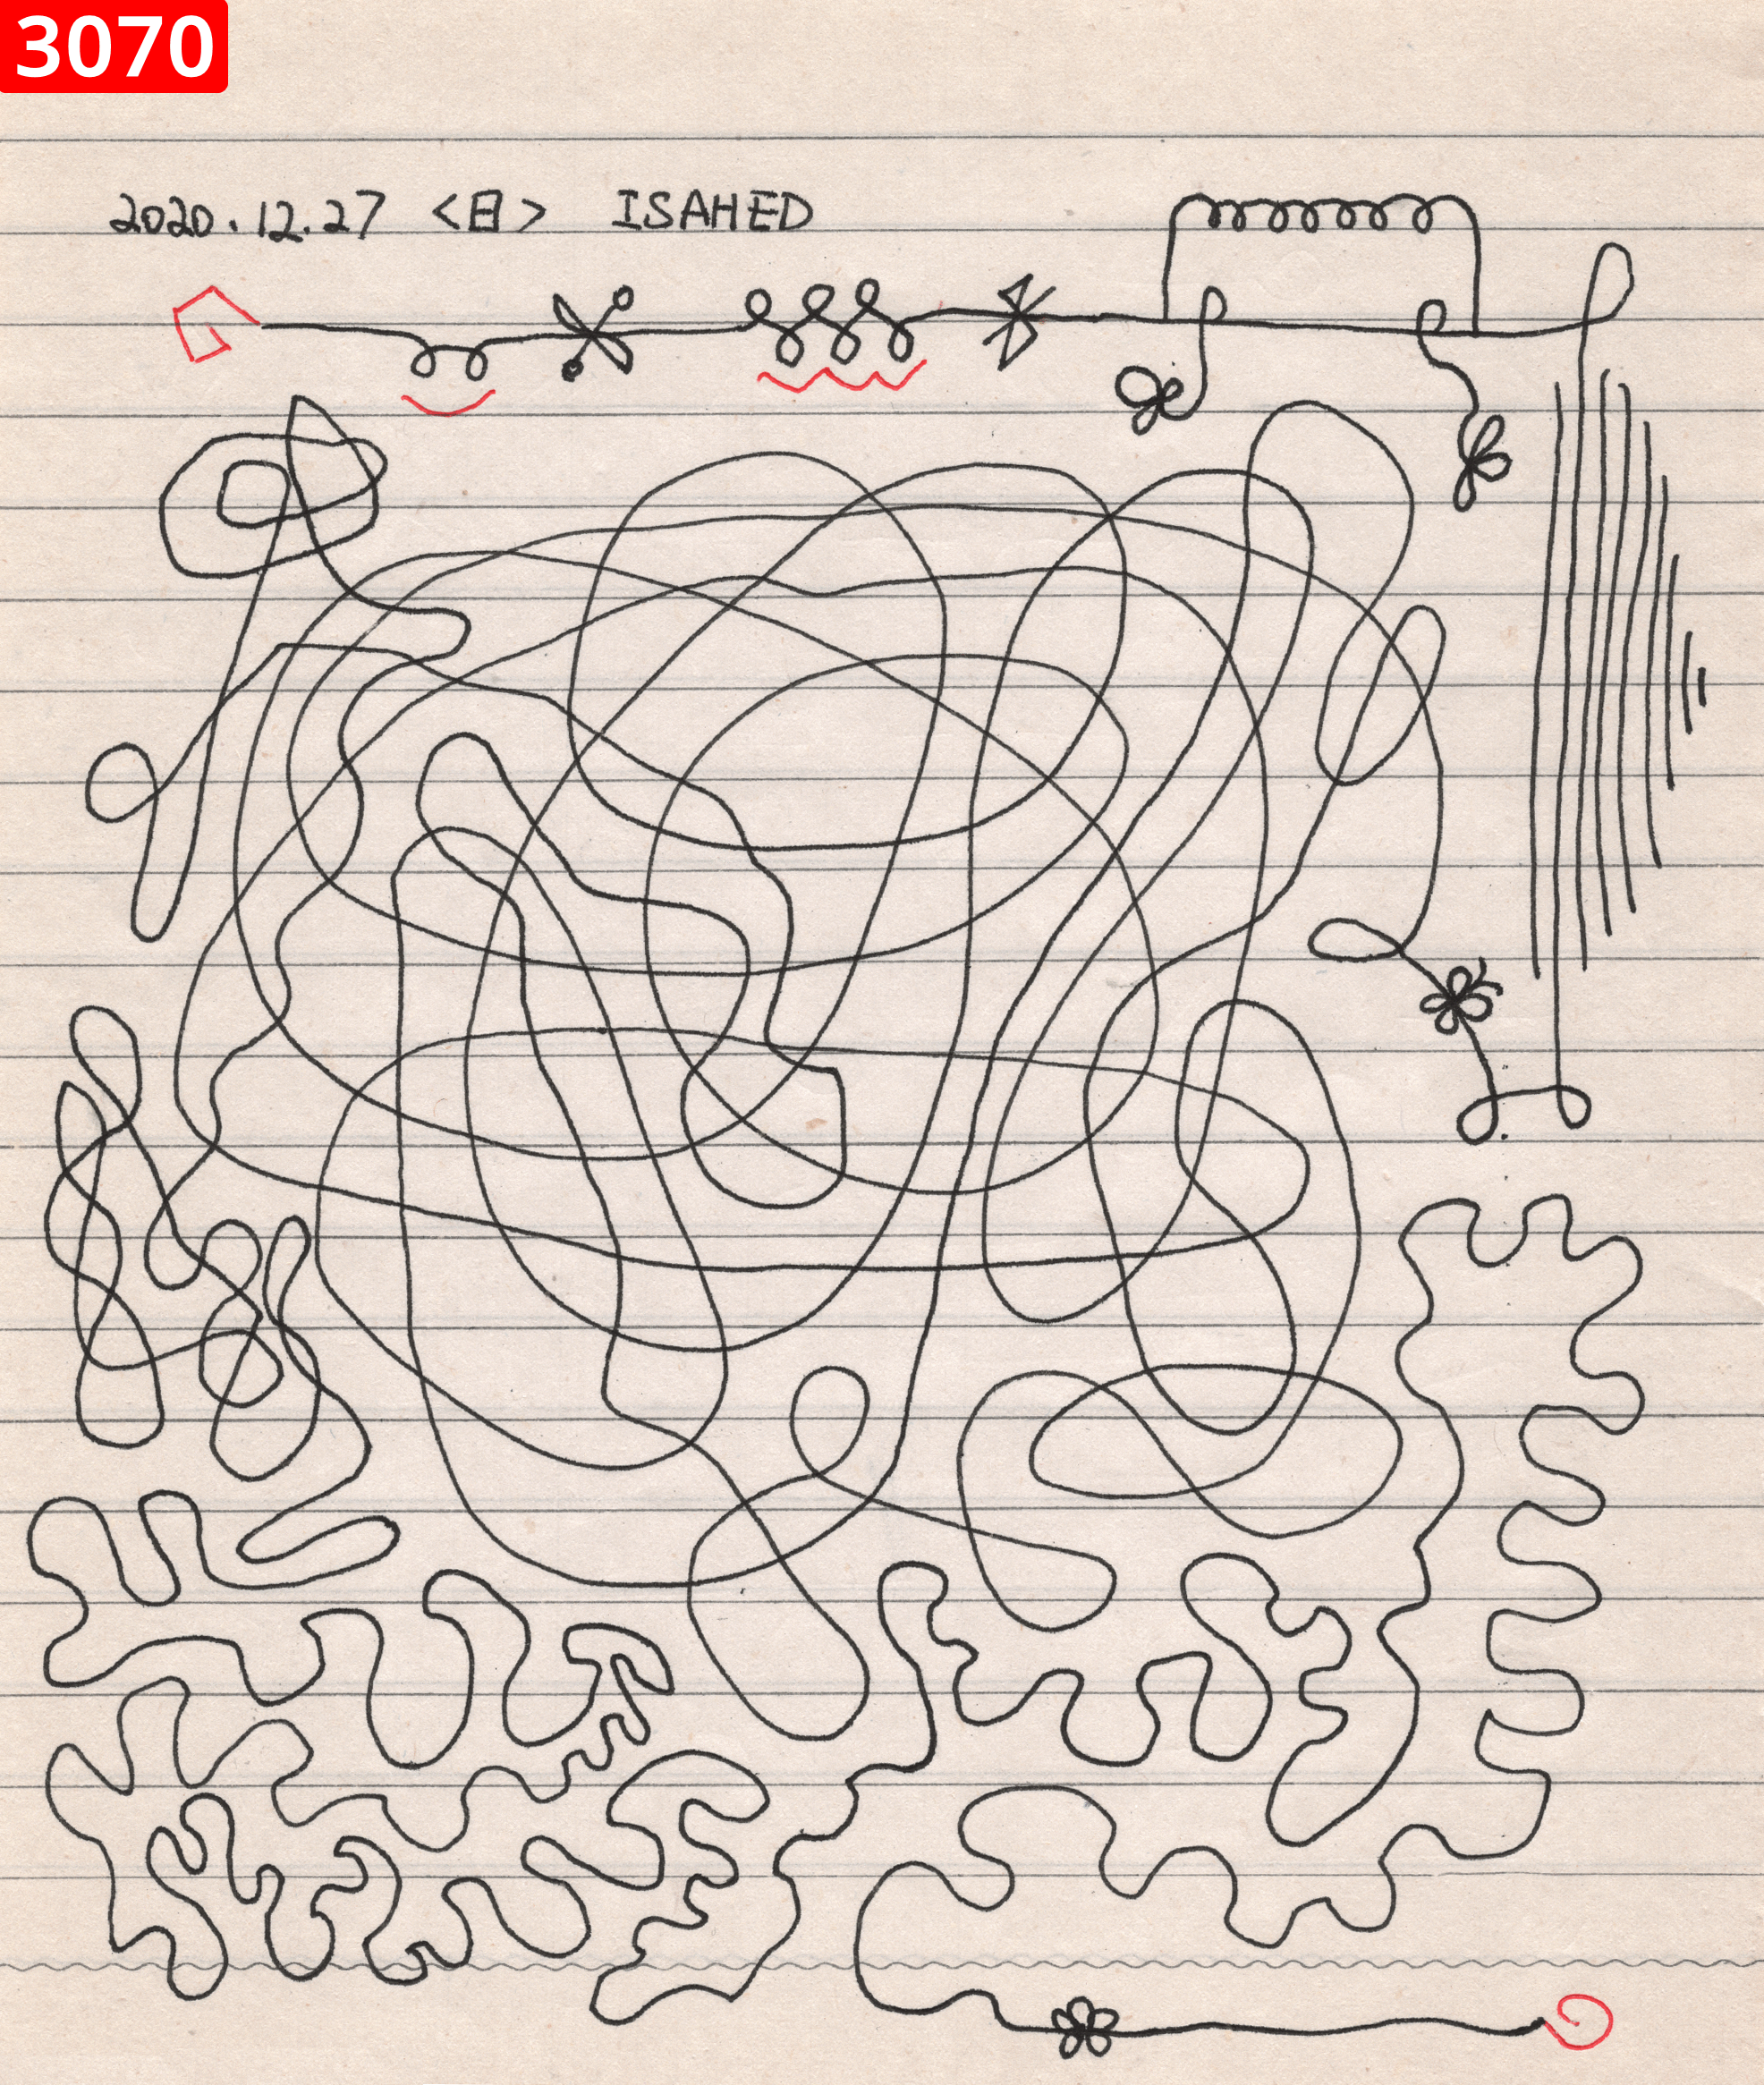 3070
2020.12.27 <日> ISAHED